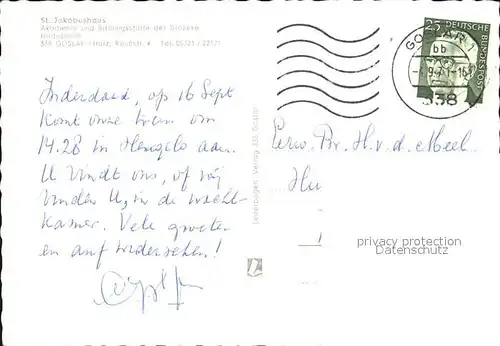 St. Jakobushaus
Akademie und Bildungsstätte der Diözese
Hildesheim
338 GOSLAR / Harz, Reußstr. 4 Tel. 05321 / 22171
25 DEUTSCHE BUNDESPOST
GOSLAR 1
bb
338
Inderdaad, op 16 Sept
komt onze trein om
14.28 in Hengelo aan.
U vindt ons, of wij
vinden U, in de wacht-
kamer. Vele groeten
en auf wiedersehen!
Eerw. Br. H. v. d. Meel.
privacy protection
Datenschutz
Verlag 338 Goslar